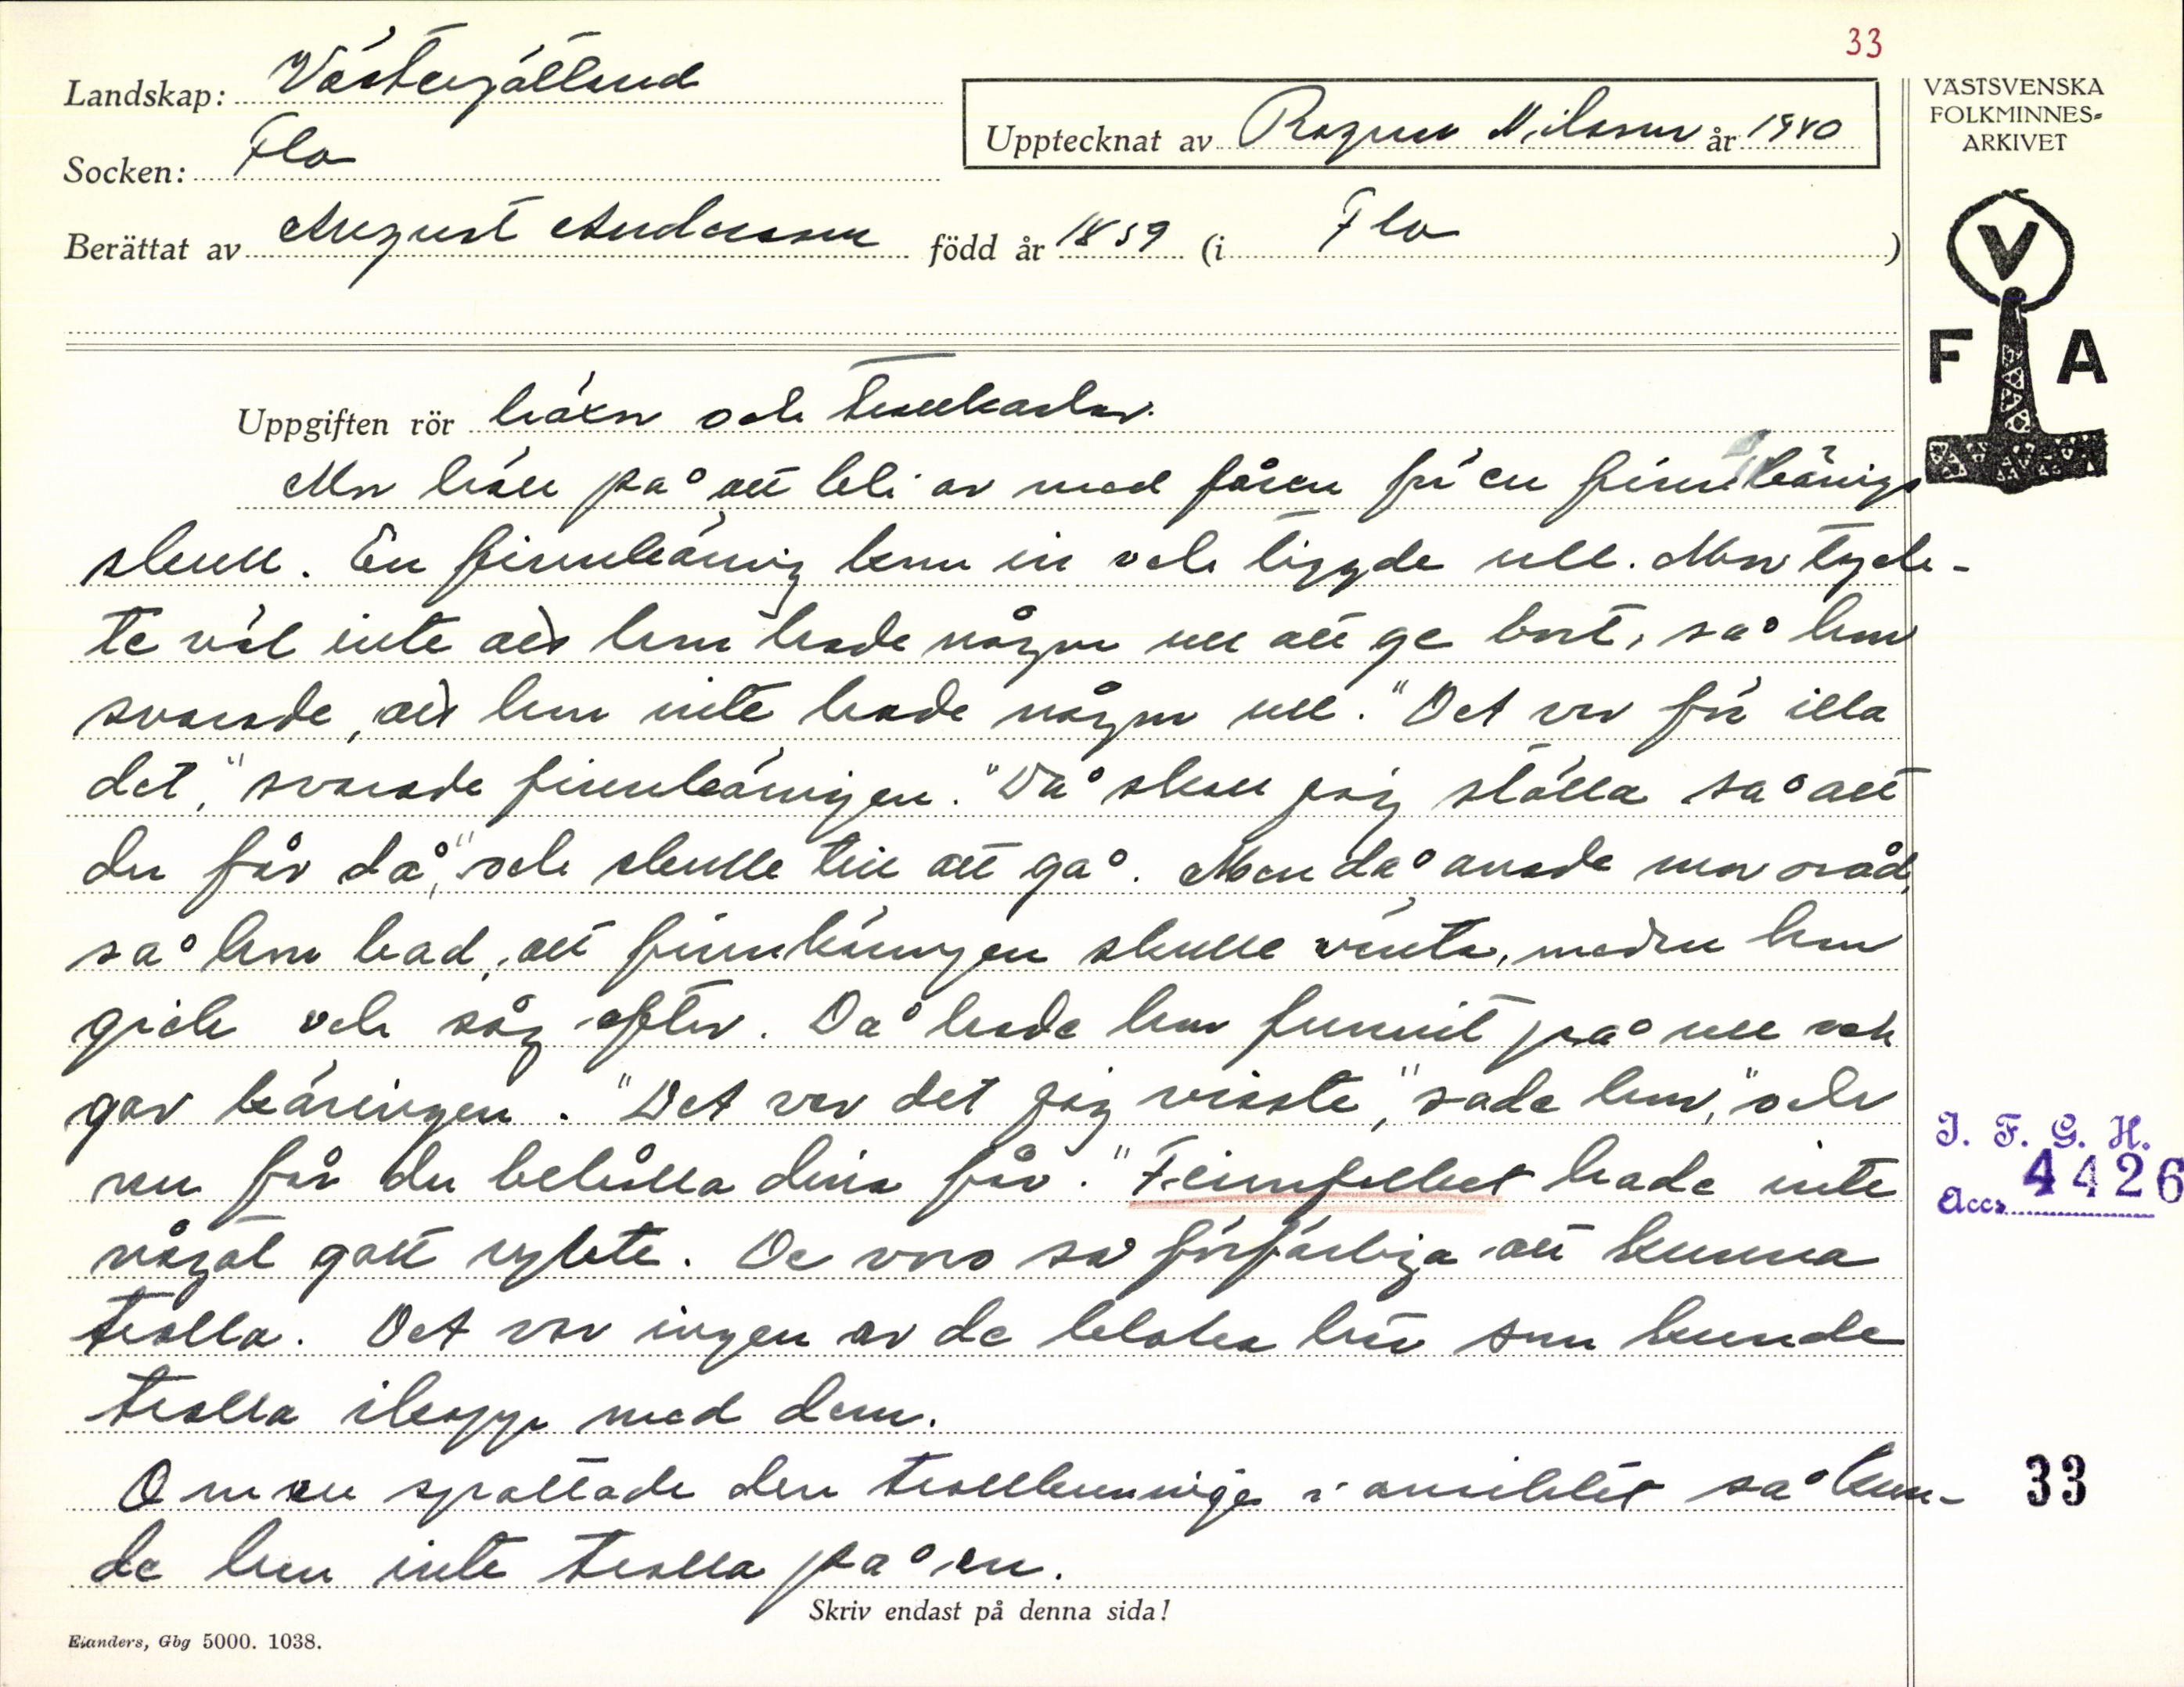 33
Landskap: Västergötland
Socken: Flo
Upptecknat av Ragnar Nilsson år 1940
Berättat av August Andersson född år 1859 (i Flo )
VÄSTSVENSKA
FOLKMINNES-
ARKIVET
V
F A
Uppgiften rör häxor och trollkarlar.
Mor höll på att bli av med fåren för en finnkärings
skull. En finnkäring kom in och tiggde ull. Mor tyck-
te väl inte att hon hade någon ull att ge bort, så hon
svarade, att hon inte hade någon ull. "Det var för illa
det," svarade finnkäringen. "Då skall jag ställa så att
du får då," och skulle till att gå. Men då anade mor oråd,
så hon bad, att finnkäringen skulle vänta, medan hon
gick och såg efter. Då hade hon funnit på ull och
gav käringen. "Det var det jag visste," sade hon, "och
nu får du behålla dina får." Finnfolket hade inte
något gott rykte. De voro så förfärliga att kunna
trolla. Det var ingen av de kloka här som kunde
trolla ikapp med dem.
Om en spottade den trollkunnige i ansiktet så kun-
de hon inte trolla på en.
Skriv endast på denna sida!
Elanders, Gbg 5000. 1038.
I. F. G. H.
Acc. 4426
33